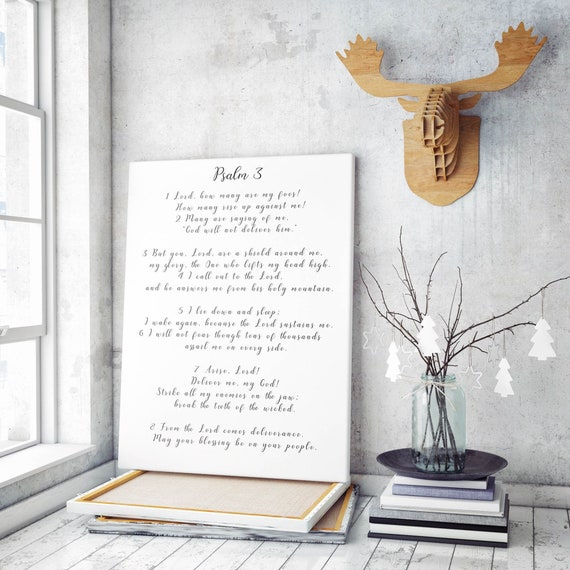 Psalm 3
1 Lord, how many are my foes!
How many rise up against me!
2 Many are saying of me,
"God will not deliver him."
3 But you, Lord, are a shield around me,
my glory, the One who lifts my head high.
4 I call out to the Lord,
and he answers me from his holy mountain.
5 I lie down and sleep;
I wake again, because the Lord sustains me.
6 I will not fear though tens of thousands
assail me on every side.
7 Arise, Lord!
Deliver me, my God!
Strike all my enemies on the jaw;
break the teeth of the wicked.
8 From the Lord comes deliverance.
May your blessing be on your people.